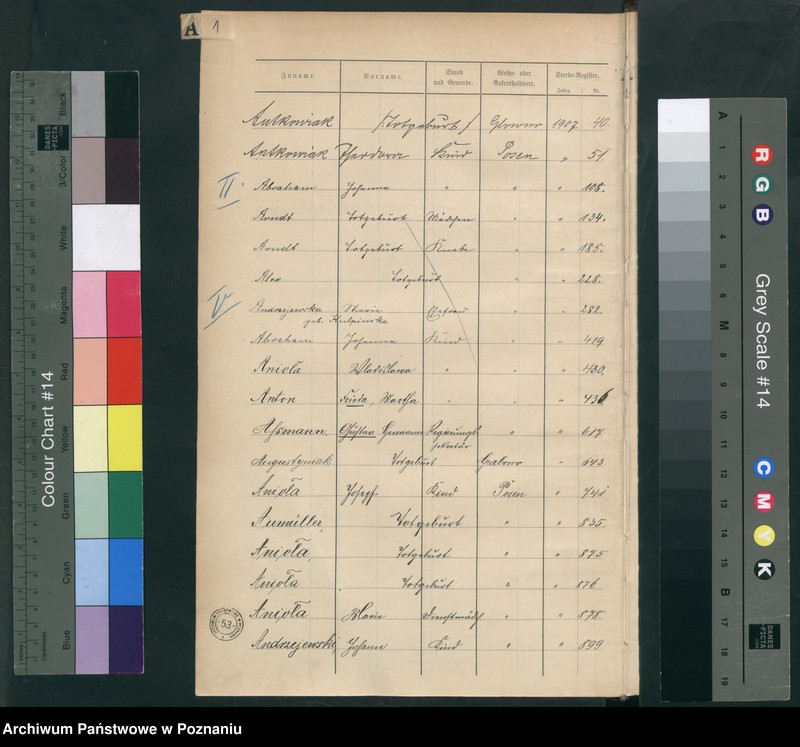 A 1
Zuname. Vorname. Stand und Gewerbe. Wohn- oder Aufenthaltsort. Sterbe-Register. Jahrg. Nr.
Antkowiak /Totgeburt/ Glowno 1907 40.
Antkowiak Theodora Kind Posen " 51.
II. Abraham Johanna " " " 108.
Arndt Totgeburt Mädchen " " 134.
Arndt Totgeburt Knabe " " 185.
Alex Totgeburt " " 228.
V Andrzejewska Marie Ehefrau " " 282.
geb. Kulpinska
Abraham Johanna Kind " " 419
Aniola Wladislawa " " " 430.
Anton Frieda, Martha " " " 436
Assmann, Gustav Hermann Regierungs " " 617
sekretär
Augustyniak Totgeburt " 643
Anioła Joseph Kind Posen " 741
Aumüller, Totgeburt " " 835.
Anioła, Totgeburt " " 875
Anioła Totgeburt " " 876
Anioła Marie Dienstmädch " " 878
Andrzejewski, Johann Kind " " 899
53
Colour Chart #14
Black
3/Color
White
Magenta
Red
Yellow
Green
Cyan
Blue
DANES PICTA
Grey Scale #14
R
G
B
C
M
Y
K
A 1 2 3 4 5 6 M 8 9 10 11 12 13 14 15 B 17 18 19
DANES PICTA
Archiwum Państwowe w Poznaniu